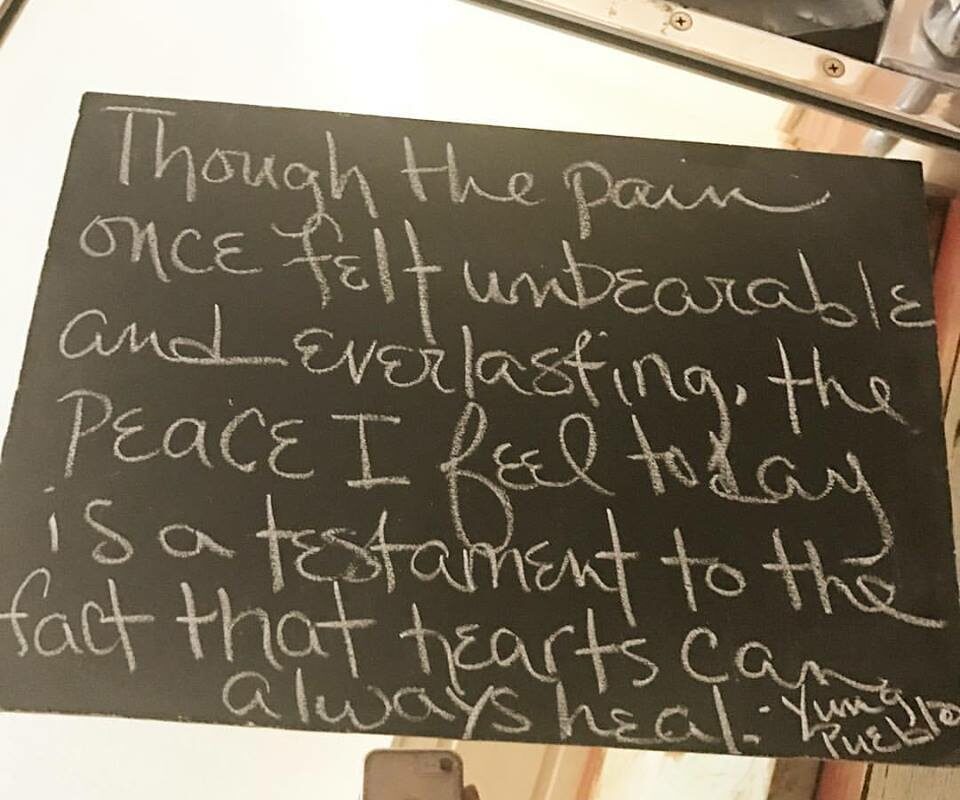 Though the pain
once felt unbearable
and everlasting, the
Peace I feel today
is a testament to the
fact that hearts can
always heal. - Yung
Pueblo